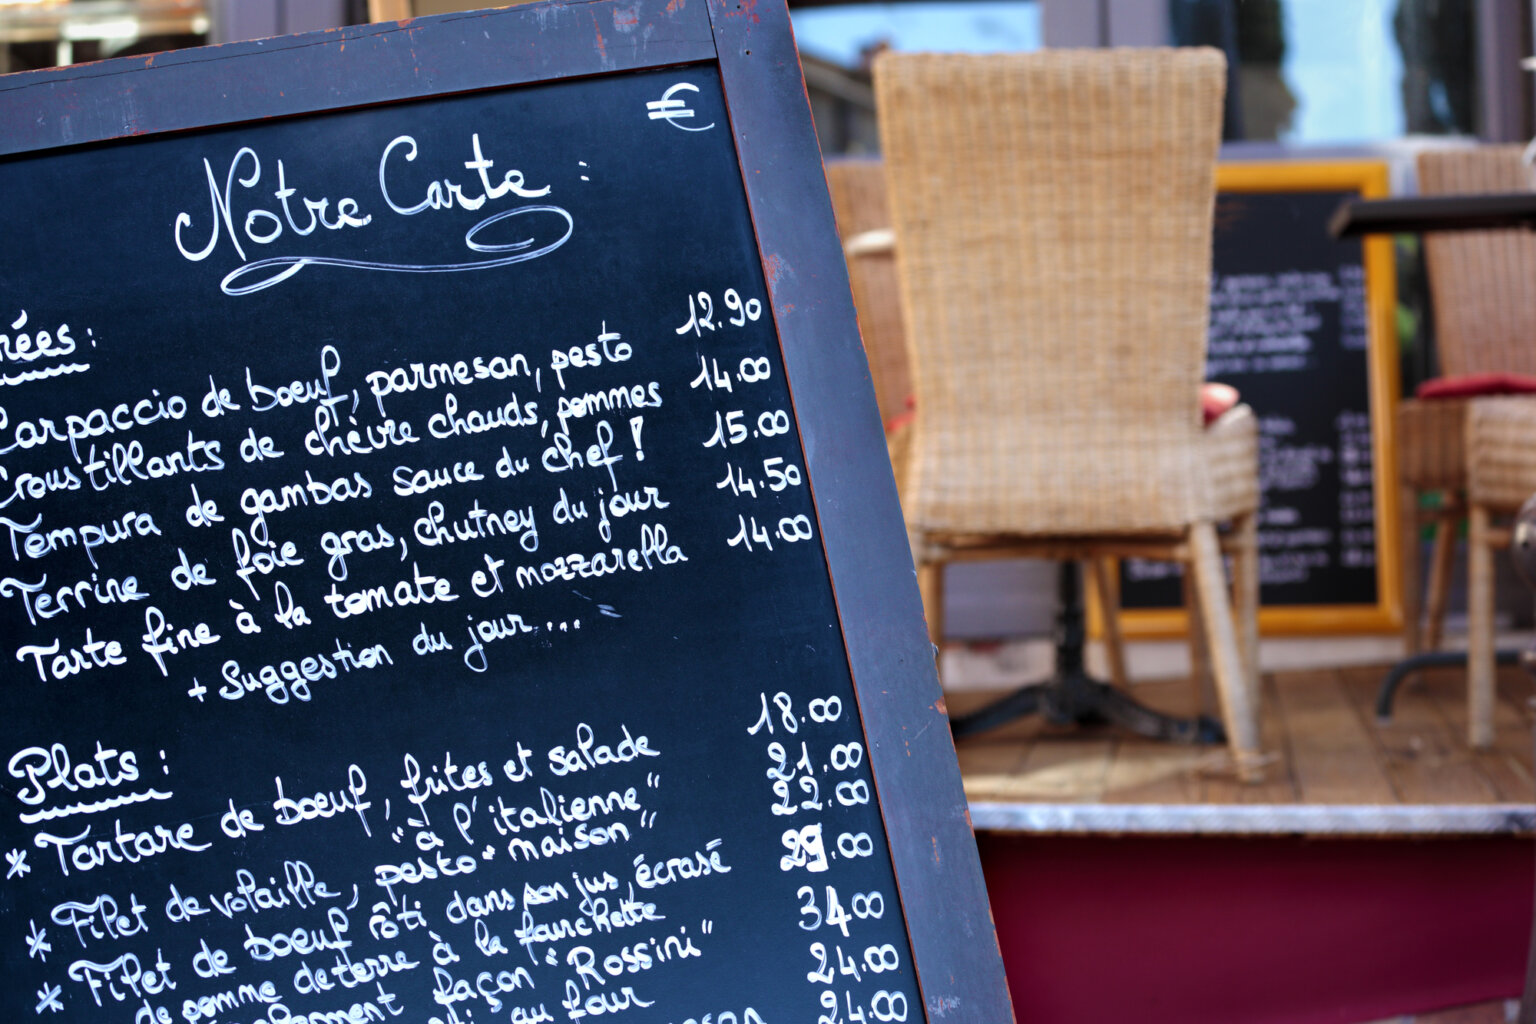 €
Notre Carte :
rées :
Carpaccio de boeuf, parmesan, pesto 12.90
Croustillants de chèvre chauds, pommes 14.00
Tempura de gambas sauce du chef ! 15.00
Terrine de foie gras, chutney du jour 14.50
Tarte fine à la tomate et mozzarella 14.00
+ Suggestion du jour...
Plats :
* Tartare de boeuf, frites et salade 18.00
"à l'italienne" 21.00
* Filet de volaille, pesto "maison" 22.00
* Filet de boeuf rôti dans son jus, écrasé 29.00
de pomme de terre à la fourchette
façon "Rossini" 34.00
au four 24.00
24.00